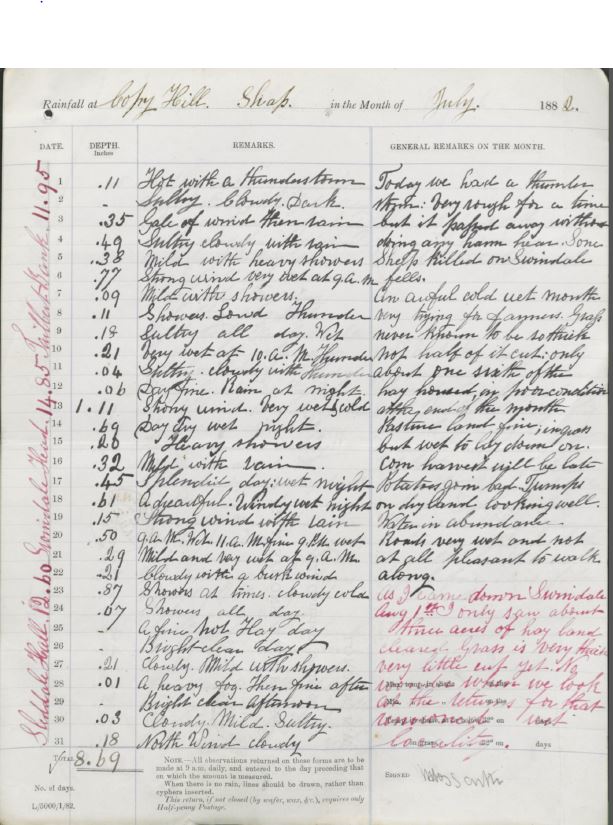 Rainfall at Copy Hill. Shap. in the Month of July. 1882.
DATE. DEPTH. Inches REMARKS. GENERAL REMARKS ON THE MONTH.
1 .11 Hot with a thunderstorm
2 - Sultry. Cloudy. Dark
3 .35 Gale of wind then rain
4 .49 Sultry cloudy with rain
5 .38 Mild with heavy showers
6 .77 Strong wind very wet at 9.a.m
7 .09 Mild with showers.
8 .11 Showers. Loud Thunder
9 .18 Sultry all day. Wet
10 .21 Very wet at 10.A.M. Thunder
11 .04 Sultry. cloudy with thunder
12 .06 Day fine. Rain at night.
13 1.11 Strong wind. Very wet & cold
14 .69 Day dry wet night.
15 .20 Heavy showers
16 .32 Mild with rain.
17 .45 Splendid day: wet night
18 .61 A dreadful. Windy wet night
19 .15 Strong wind with rain
20 .50 9.A.M. Wet. 11.A.M. fine 9.P.M. wet
21 .29 Mild and very wet at 9.A.M.
22 .21 Cloudy with a brisk wind
23 .87 Showers at times. cloudy cold
24 .67 Showers all day.
25 - A fine hot Hay day
26 - Bright clear day
27 .21 Cloudy. Mild with showers.
28 .01 A heavy fog. Then fine after
29 - Bright clear Afternoon
30 .03 Cloudy. Mild. Sultry.
31 .18 North Wind cloudy
TOTAL 8.69
No. of days.
L/5000/1/82.
NOTE.—All observations returned on these forms are to be
made at 9 a.m. daily, and entered to the day preceding that
on which the amount is measured.
When there is no rain, lines should be drawn, rather than
cyphers inserted.
This return, if not closed (by wafer, wax, &c.), requires only
Half-penny Postage.
Today we had a thunder
storm. Very rough for a time
but it passed away without
doing any harm hear. Some
Sheep killed on Swindale
fells.
An awful cold wet month
very trying for farmers. Grass
never known to be so thick
not half of it cut: only
about one sixth of the
hay housed, in poor condition
at the end of the month
Pasture land fine, in grass
but wet to lay down on.
Corn harvest will be late
Potatoes goin bad. Turnips
on dry land looking well.
Water in abundance.
Roads very wet and not
at all pleasant to walk
along.
As I came down Swindale
Aug 1st I only saw about
three acres of hay land
cleared Grass is very thick
very little cut yet.
when we look
at the returns for that
wet
Locality.
days
days
SIGNED
Sleddale Hall. 12.60 Swindale Head. 14.85 11.95